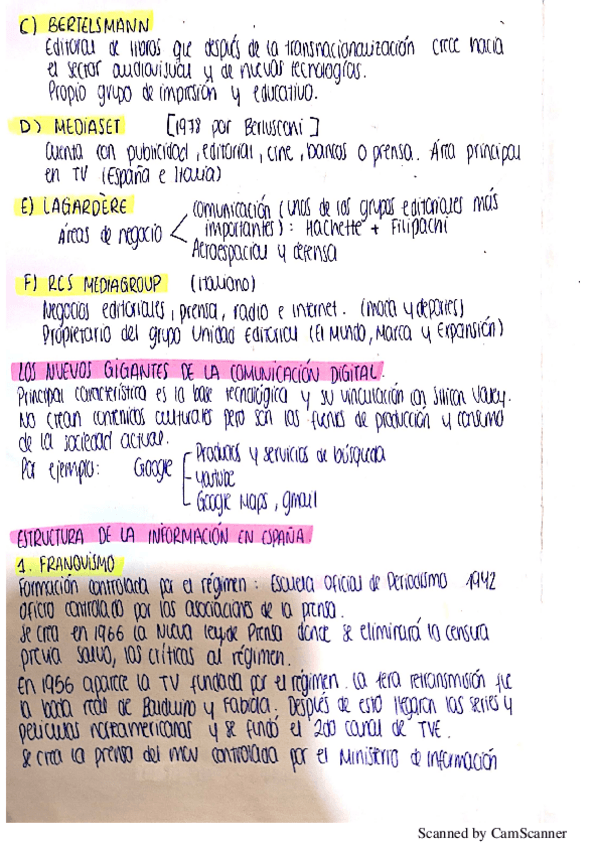 C) BERTELSMANN
Editorial de libros que después de la transnacionalización crece hacia
el sector audiovisual y de nuevas tecnologías.
Propio grupo de impresión y educativo.
D) MEDIASET [1978 por Berlusconi]
Cuenta con publicidad, editorial, cine, bancos o prensa. Área principal
en TV (España e Italia)
E) LAGARDÈRE
Áreas de negocio
comunicación (unos de los grupos editoriales más
importantes): Hachette + Filipachi
Aeroespacial y defensa
F) RCS MEDIAGROUP (italiano)
Negocios editoriales, prensa, radio e internet. (moda y deportes)
Propietario del grupo Unidad Editorial (El Mundo, Marca y Expansión)
LOS NUEVOS GIGANTES DE LA COMUNICACIÓN DIGITAL.
Principal característica es la base tecnológica y su vinculación con Silicon Valley.
No crean contenidos culturales pero son las fuentes de producción y consumo
de la sociedad actual.
Por ejemplo: Google
Productos y servicios de búsqueda
Youtube
Google Maps, gmail
ESTRUCTURA DE LA INFORMACIÓN EN ESPAÑA.
1. FRANQUISMO
Formación controlada por el régimen: Escuela Oficial de Periodismo 1942
Oficio controlado por las asociaciones de la prensa.
Se crea en 1966 la Nueva ley de Prensa donde se eliminará la censura
previa salvo, las críticas al régimen.
En 1956 aparece la TV fundada por el régimen. La 1era retransmisión fue
la boda real de Balduino y Fabiola. Después de esto llegaron las series y
películas norteamericanas y se fundó el 2do canal de TVE.
Se crea la prensa del mov controlada por el Ministerio de Información
Scanned by CamScanner